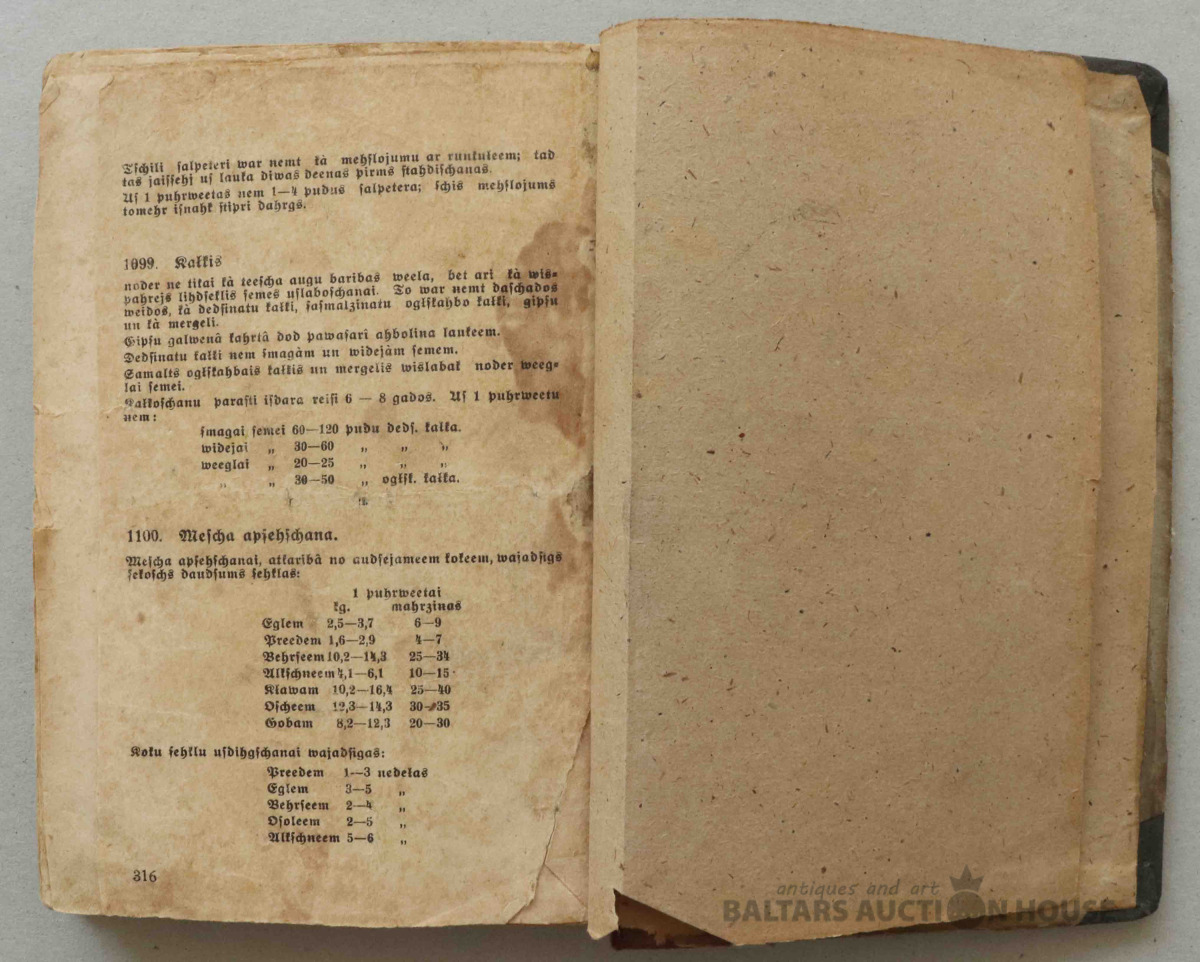 Tſchili ſalpeteri war nemt kà mehſlojumu ar runkuleem; tad
tas jaiſſehj uſ lauka diwas deenas pirms ſtahdiſchanas.
Uſ 1 puhrweetas nem 1—4 pudus ſalpetera; ſchis mehſlojums
tomehr iſnahk ſtipri dahrgs.
1099. Kaļķis
noder ne tikai kà teeſcha augu baribas weela, bet ari kà wis-
pahrejs lihdſeklis ſemes uſlaboſchanai. To war nemt daſchados
weidos, kà dedſinatu kaļķi, ſaſmalzinatu ogļſkahbo kaļķi, gipſu
un kà mergeli.
Gipſu galwenâ kahrtâ dod pawaſarî ahbolina laukeem.
Dedſinatu kaļķi nem ſmagàm un widejàm ſemem.
Samalts ogļſkahbais kaļķis un mergelis wislabak noder weeg-
lai ſemei.
Kaļķoſchanu paraſti iſdara reiſi 6 — 8 gados. Uſ 1 puhrweetu
nem:
ſmagai ſemei 60—120 pudu dedſ. kaļķa.
widejai „ 30—60 „ „ „
weeglai „ 20—25 „ „ „
„ „ 30—50 „ ogļſk. kaļķa.
1100. Meſcha apſehſchana.
Meſcha apſehſchanai, atkaribâ no audſejameem kokeem, wajadſigs
ſekoſchs daudſums ſehklas:
1 puhrweetai
kg. mahrzinas
Eglem 2,5—3,7 6—9
Preedem 1,6—2,9 4—7
Behrſeem 10,2—14,3 25—34
Alkſchneem 4,1—6,1 10—15
Klawam 10,2—16,4 25—40
Oſcheem 12,3—14,3 30—35
Gobam 8,2—12,3 20—30
Koku ſehklu uſdihgſchanai wajadſigas:
Preedem 1—3 nedelas
Eglem 3—5 „
Behrſeem 2—4 „
Oſoleem 2—5 „
Alkſchneem 5—6 „
316
antiques and art
BALTARS AUCTION HOUSE